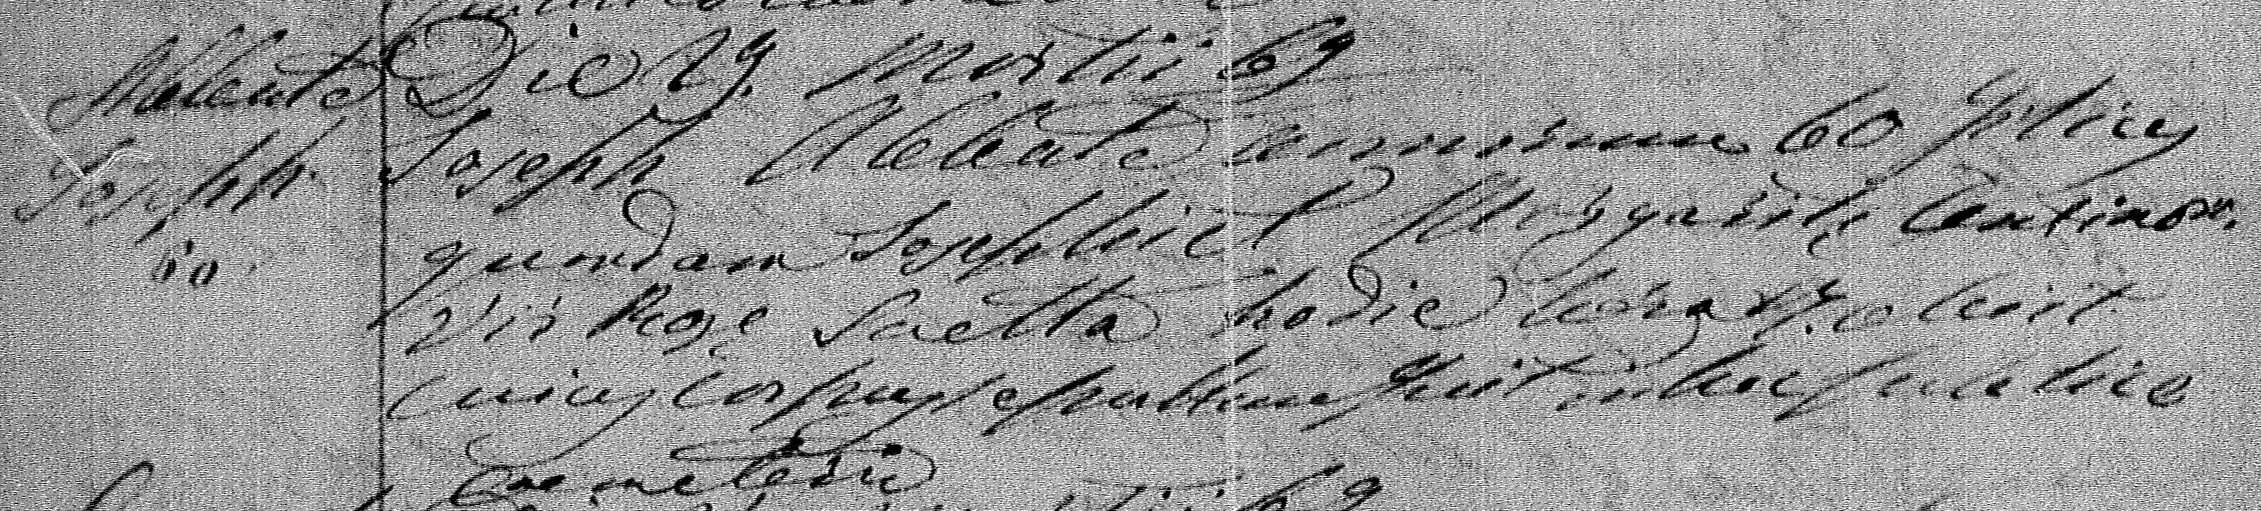 Abbate
Joseph
60
Die 29. Martii 69
Joseph Abbate annorum 60 filius
quondam Joseph et Margarite
vir Rose Saetta hodie hora obiit
cuius corpus sepultum fuit in hoc publico
cemeterio
69